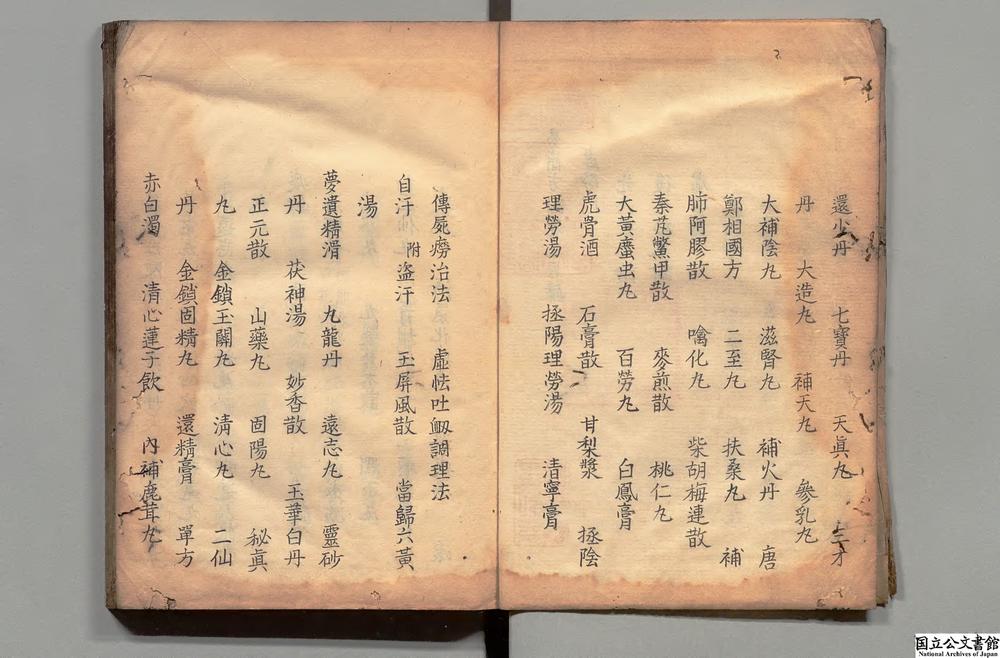 還少丹 七寶丹 天眞丸 三才
丹 大造丸 補天丸 參乳丸
大補陰丸 滋腎丸 補火丹 唐
鄭相國方 二至丸 扶桑丸 補
肺阿膠散 噙化丸 柴胡梅連散
秦艽鱉甲散 麥煎散 桃仁丸
大黃䗪虫丸 百勞丸 白鳳膏
虎骨酒 石膏散 甘梨漿 拯陰
理勞湯 拯陽理勞湯 清寧膏
傳屍癆治法 虛怯吐衂調理法
自汗 附盜汗 玉屏風散 當歸六黃
湯
夢遺精滑 九龍丹 遠志丸 靈砂
丹 茯神湯 妙香散 玉華白丹
正元散 山藥丸 固陽丸 秘眞
丸 金鎖玉關丸 淸心丸 二仙
丹 金鎖固精丸 還精膏 單方
赤白濁 清心蓮子飲 內補鹿茸丸
国立公文書館
National Archives of Japan